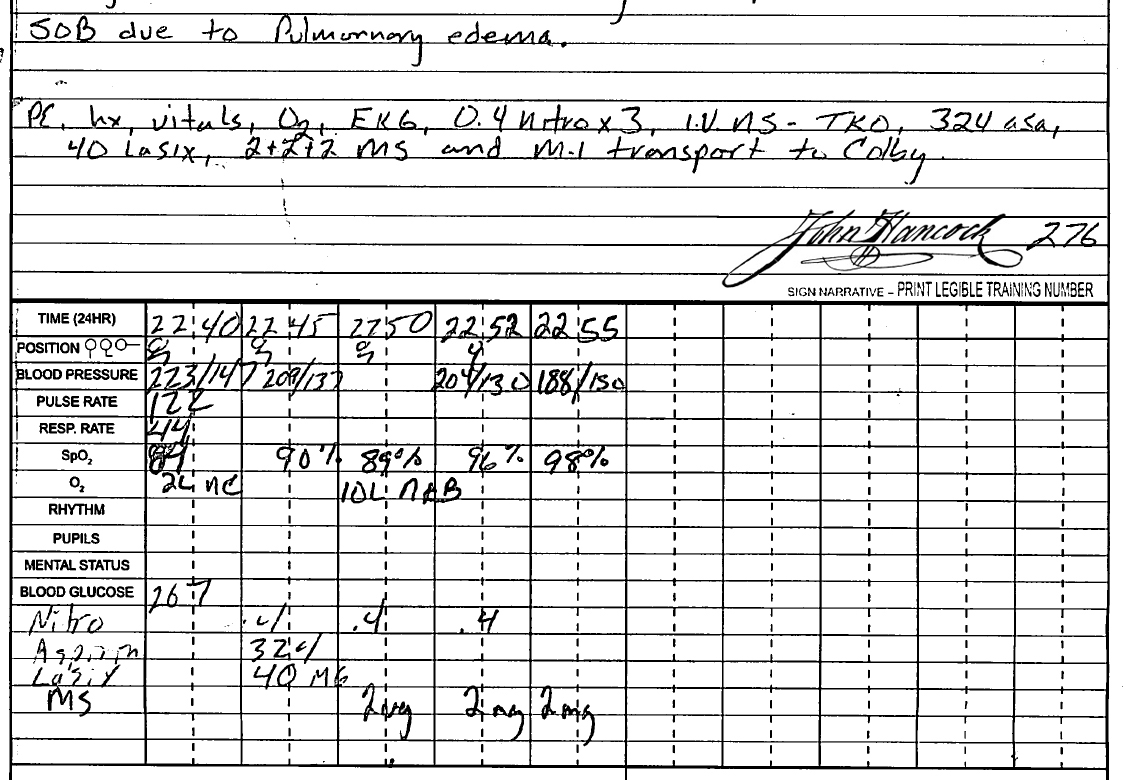 SOB due to Pulmornary edema.
PE, hx, vitals, O2, EKG, 0.4 nitro x 3, I.V. NS - TKO, 324 asa,
40 Lasix, 2+2+2 MS and M-1 transport to Colby.
John Hancock 276
SIGN NARRATIVE – PRINT LEGIBLE TRAINING NUMBER
TIME (24HR) 22:40 22 45 2250 22 52 22 55
POSITION
BLOOD PRESSURE 223/147 209/137 204/130 188/150
PULSE RATE 122
RESP. RATE 44
SpO2 84 90% 89% 96% 98%
O2 2L NC 10L NRB
RHYTHM
PUPILS
MENTAL STATUS
BLOOD GLUCOSE 267
Nitro .4 .4 .4
Aspirin 324
Lasix 40 MG
MS 2mg 2mg 2mg